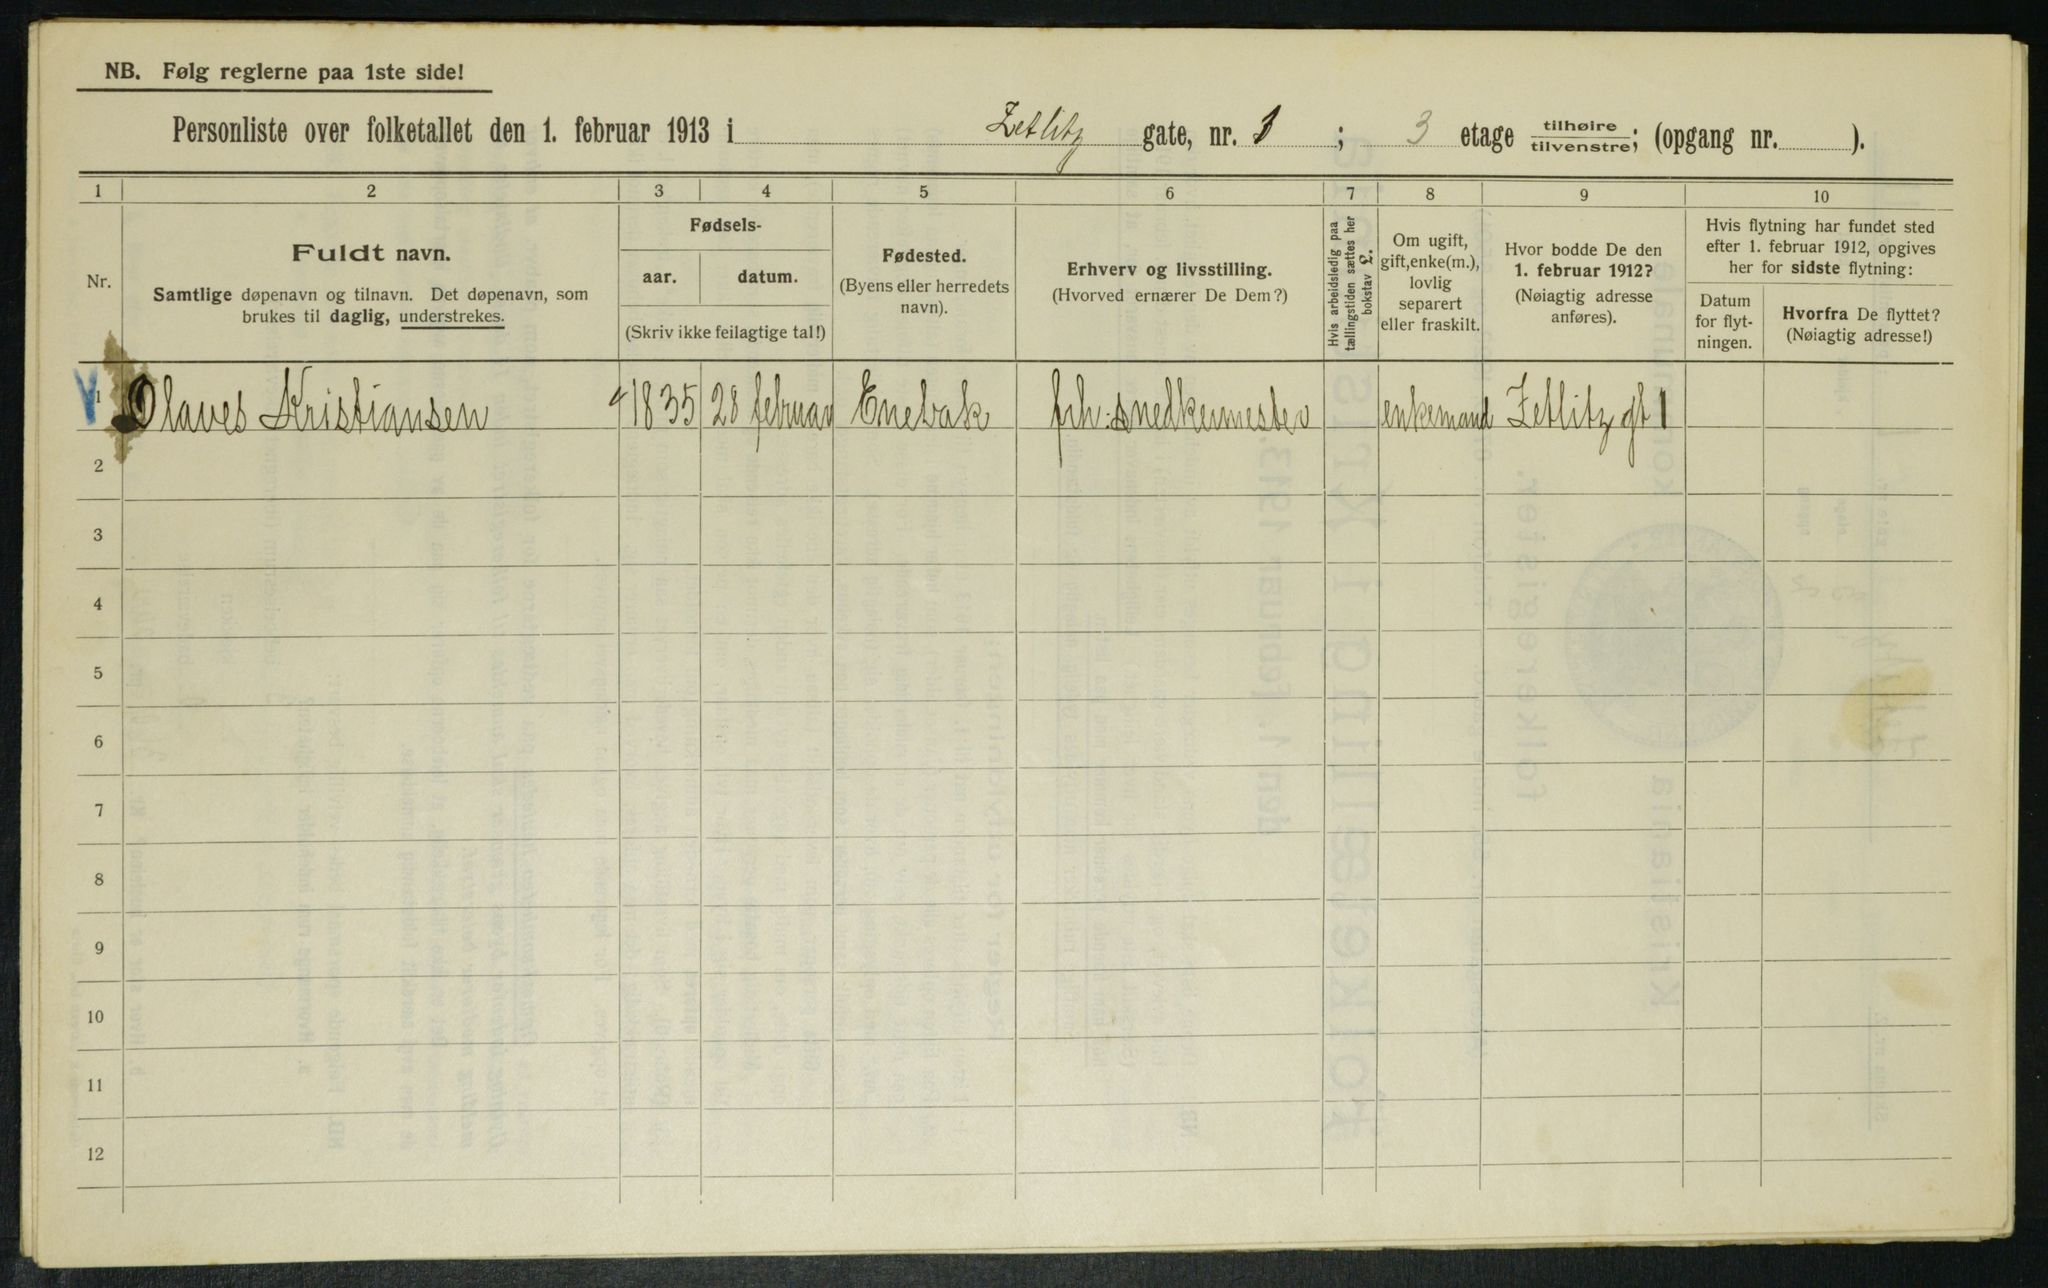 NB. Følg reglerne paa 1ste side!
Personliste over folketallet den 1. februar 1913 i Zetlitz gate, nr. 1 ; 3 etage tilhøire tilvenstre; (opgang nr. ).
1 2 3 4 5 6 7 8 9 10
Nr.
Fuldt navn.
Samtlige døpenavn og tilnavn. Det døpenavn, som
brukes til daglig, understrekes.
Fødsels-
aar. datum.
(Skriv ikke feilagtige tal!)
Fødested.
(Byens eller herredets
navn).
Erhverv og livsstilling.
(Hvorved ernærer De Dem?)
Hvis arbeidsledig paa
tællingstiden sættes her
bokstav L.
Om ugift,
gift, enke(m.),
lovlig
separert
eller fraskilt.
Hvor bodde De den
1. februar 1912?
(Nøiagtig adresse
anføres).
Hvis flytning har fundet sted
efter 1. februar 1912, opgives
her for sidste flytning:
Datum
for flyt-
ningen.
Hvorfra De flyttet?
(Nøiagtig adresse!)
1 Olaves Kristiansen 1835 28 februar Enebak frh. snedkermester enkemand Zetlitz gt 1
2
3
4
5
6
7
8
9
10
11
12